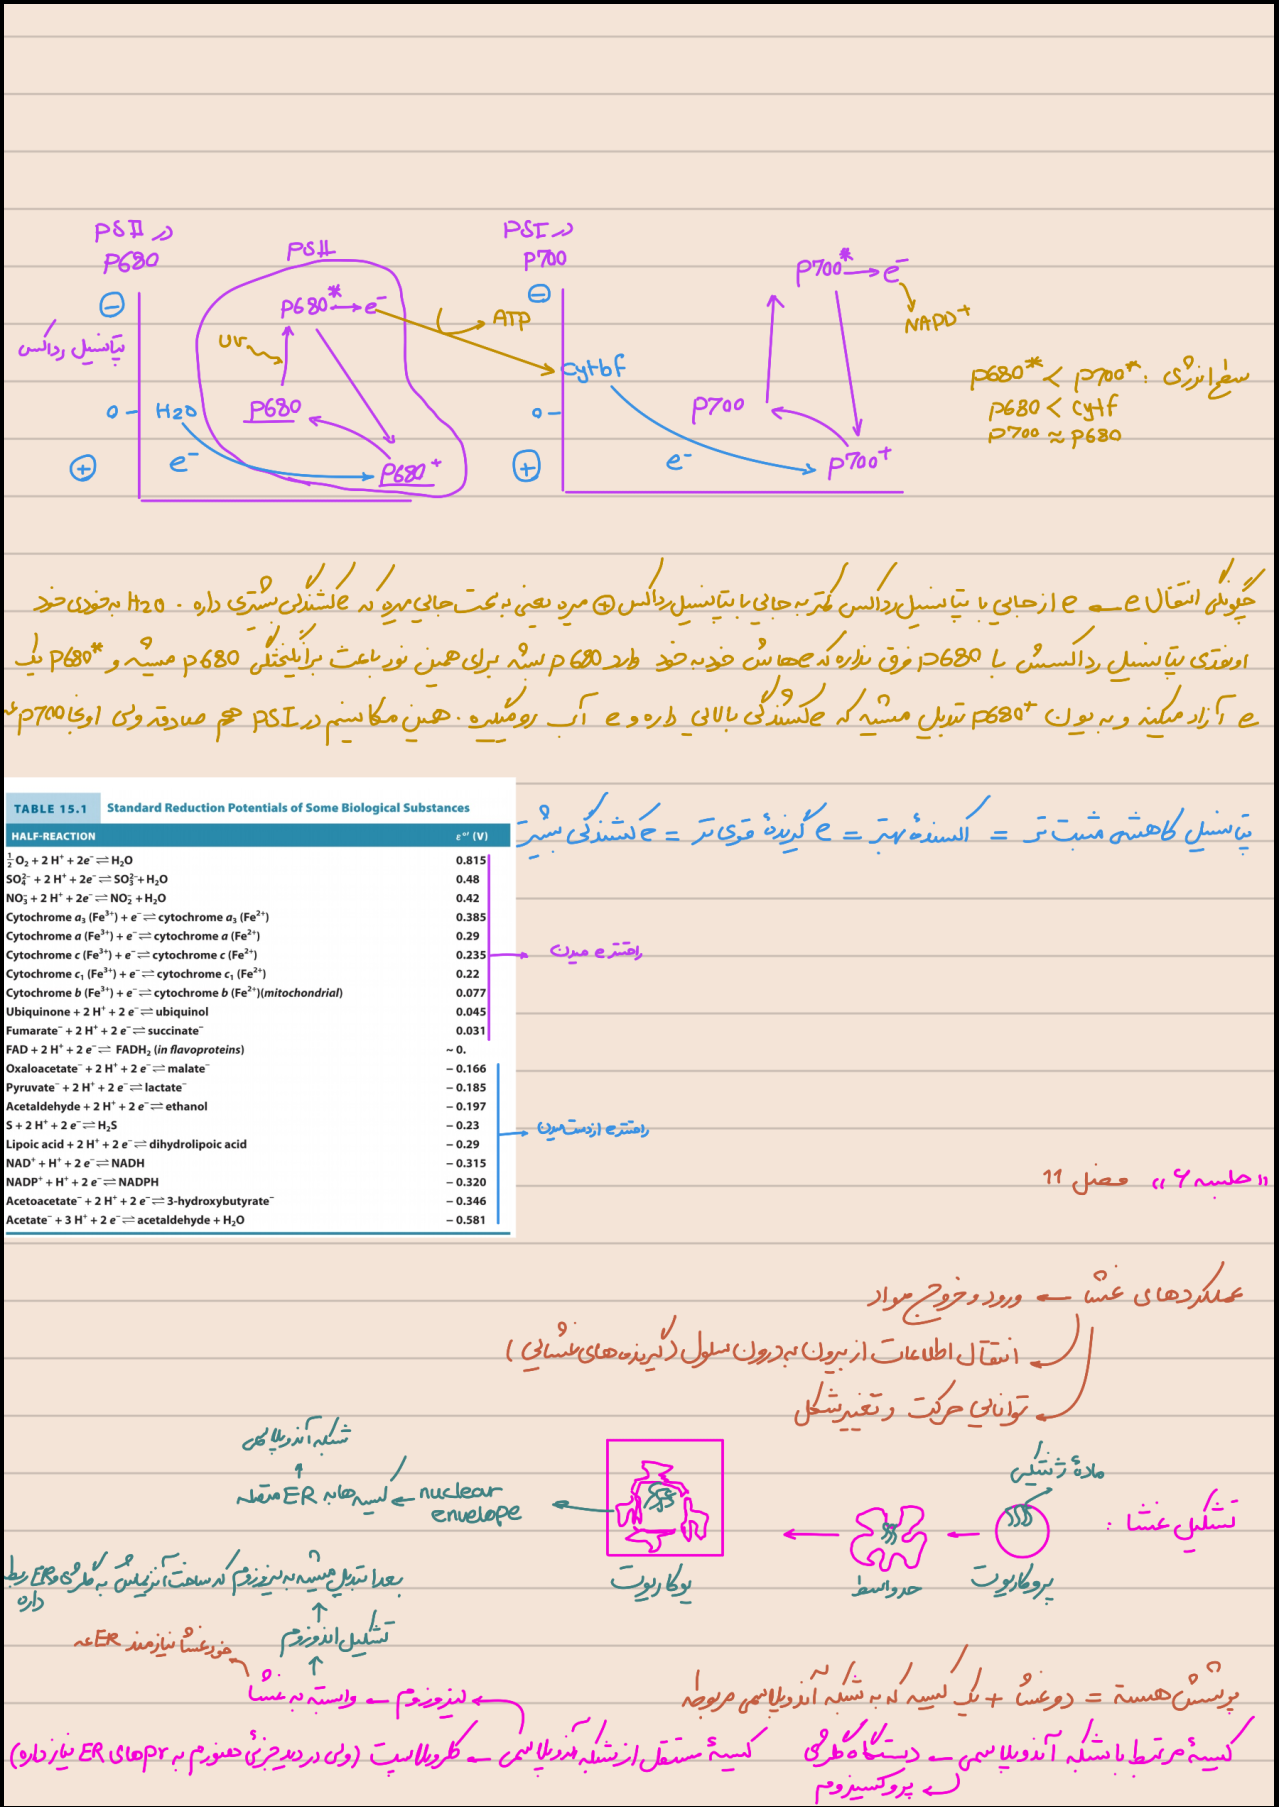 PSII در
P680
PSII
PSI در
P700
P680* → e⁻
P700* → e⁻
ATP
NAPD⁺
UV
پتانسیل رداکس
Cytbf
P680* < P700* : سطح انرژی
0 - H2O
P680
0 -
P700
P680 < Cytf
P700 ≈ P680
e⁻
P680⁺
e⁻
P700⁺
چگونگی انتقال e ← e از جایی با پتانسیل رداکس کمتر به جایی با پتانسیل رداکس ⊕ میره یعنی به سمت جایی میره که e کشندگی بیشتری داره. H2O به خودی خود
اونقدری پتانسیل رداکسش با P680 فرق نداره که e هاش خود به خود وارد P680 بشه برای همین نور باعث برانگیختگی P680 میشه و P680* یک
e آزاد میکنه و به یون P680⁺ تبدیل میشه که e کشندگی بالایی داره و e آب رو میگیره. همین مکانیسم در PSI هم صادقه ولی اونجا P700 عه
پتانسیل کاهشی مثبت تر = اکسندهٔ بهتر = e گیرندهٔ قوی تر = e کشندگی بیشتر
TABLE 15.1 Standard Reduction Potentials of Some Biological Substances
HALF-REACTION ε°′ (V)
½ O₂ + 2 H⁺ + 2e⁻ ⇌ H₂O 0.815
SO₄²⁻ + 2 H⁺ + 2e⁻ ⇌ SO₃²⁻ + H₂O 0.48
NO₃⁻ + 2 H⁺ + 2e⁻ ⇌ NO₂⁻ + H₂O 0.42
Cytochrome a₃ (Fe³⁺) + e⁻ ⇌ cytochrome a₃ (Fe²⁺) 0.385
Cytochrome a (Fe³⁺) + e⁻ ⇌ cytochrome a (Fe²⁺) 0.29
Cytochrome c (Fe³⁺) + e⁻ ⇌ cytochrome c (Fe²⁺) 0.235
راحت تر e میدن
Cytochrome c₁ (Fe³⁺) + e⁻ ⇌ cytochrome c₁ (Fe²⁺) 0.22
Cytochrome b (Fe³⁺) + e⁻ ⇌ cytochrome b (Fe²⁺)(mitochondrial) 0.077
Ubiquinone + 2 H⁺ + 2 e⁻ ⇌ ubiquinol 0.045
Fumarate⁻ + 2 H⁺ + 2 e⁻ ⇌ succinate⁻ 0.031
FAD + 2 H⁺ + 2 e⁻ ⇌ FADH₂ (in flavoproteins) ~ 0.
Oxaloacetate⁻ + 2 H⁺ + 2 e⁻ ⇌ malate⁻ − 0.166
Pyruvate⁻ + 2 H⁺ + 2 e⁻ ⇌ lactate⁻ − 0.185
Acetaldehyde + 2 H⁺ + 2 e⁻ ⇌ ethanol − 0.197
S + 2 H⁺ + 2 e⁻ ⇌ H₂S − 0.23
راحت تر e از دست میدن
Lipoic acid + 2 H⁺ + 2 e⁻ ⇌ dihydrolipoic acid − 0.29
NAD⁺ + H⁺ + 2 e⁻ ⇌ NADH − 0.315
NADP⁺ + H⁺ + 2 e⁻ ⇌ NADPH − 0.320
Acetoacetate⁻ + 2 H⁺ + 2 e⁻ ⇌ 3-hydroxybutyrate⁻ − 0.346
Acetate⁻ + 3 H⁺ + 2 e⁻ ⇌ acetaldehyde + H₂O − 0.581
«جلسه ۶» فصل 11
عملکردهای غشا ← ورود و خروج مواد
انتقال اطلاعات از بیرون به درون سلول (گیرنده های غشایی)
توانایی حرکت و تغییر شکل
تشکیل غشا :
مادهٔ ژنتیکی
پروکاریوت
حدواسط
یوکاریوت
nuclear envelope ← کیسه ها به ER متصله
شبکه آندوپلاسمی
بعدا تبدیل میشه به لیزوزوم که ساخت آنزیماش به گلژی و ER ربط داره
تشکیل اندوزوم
خود غشا نیازمند ER عه
لیزوزوم ← وابسته به غشا
پوشش هسته = دو غشا + یک کیسه که به شبکه آندوپلاسمی مربوطه
کیسهٔ مرتبط با شبکه آندوپلاسمی ← دستگاه گلژی
پروکسیزوم
کیسهٔ مستقل از شبکه آندوپلاسمی ← کلروپلاست (ولی در دید جزئی همونم به pr های ER نیاز داره)